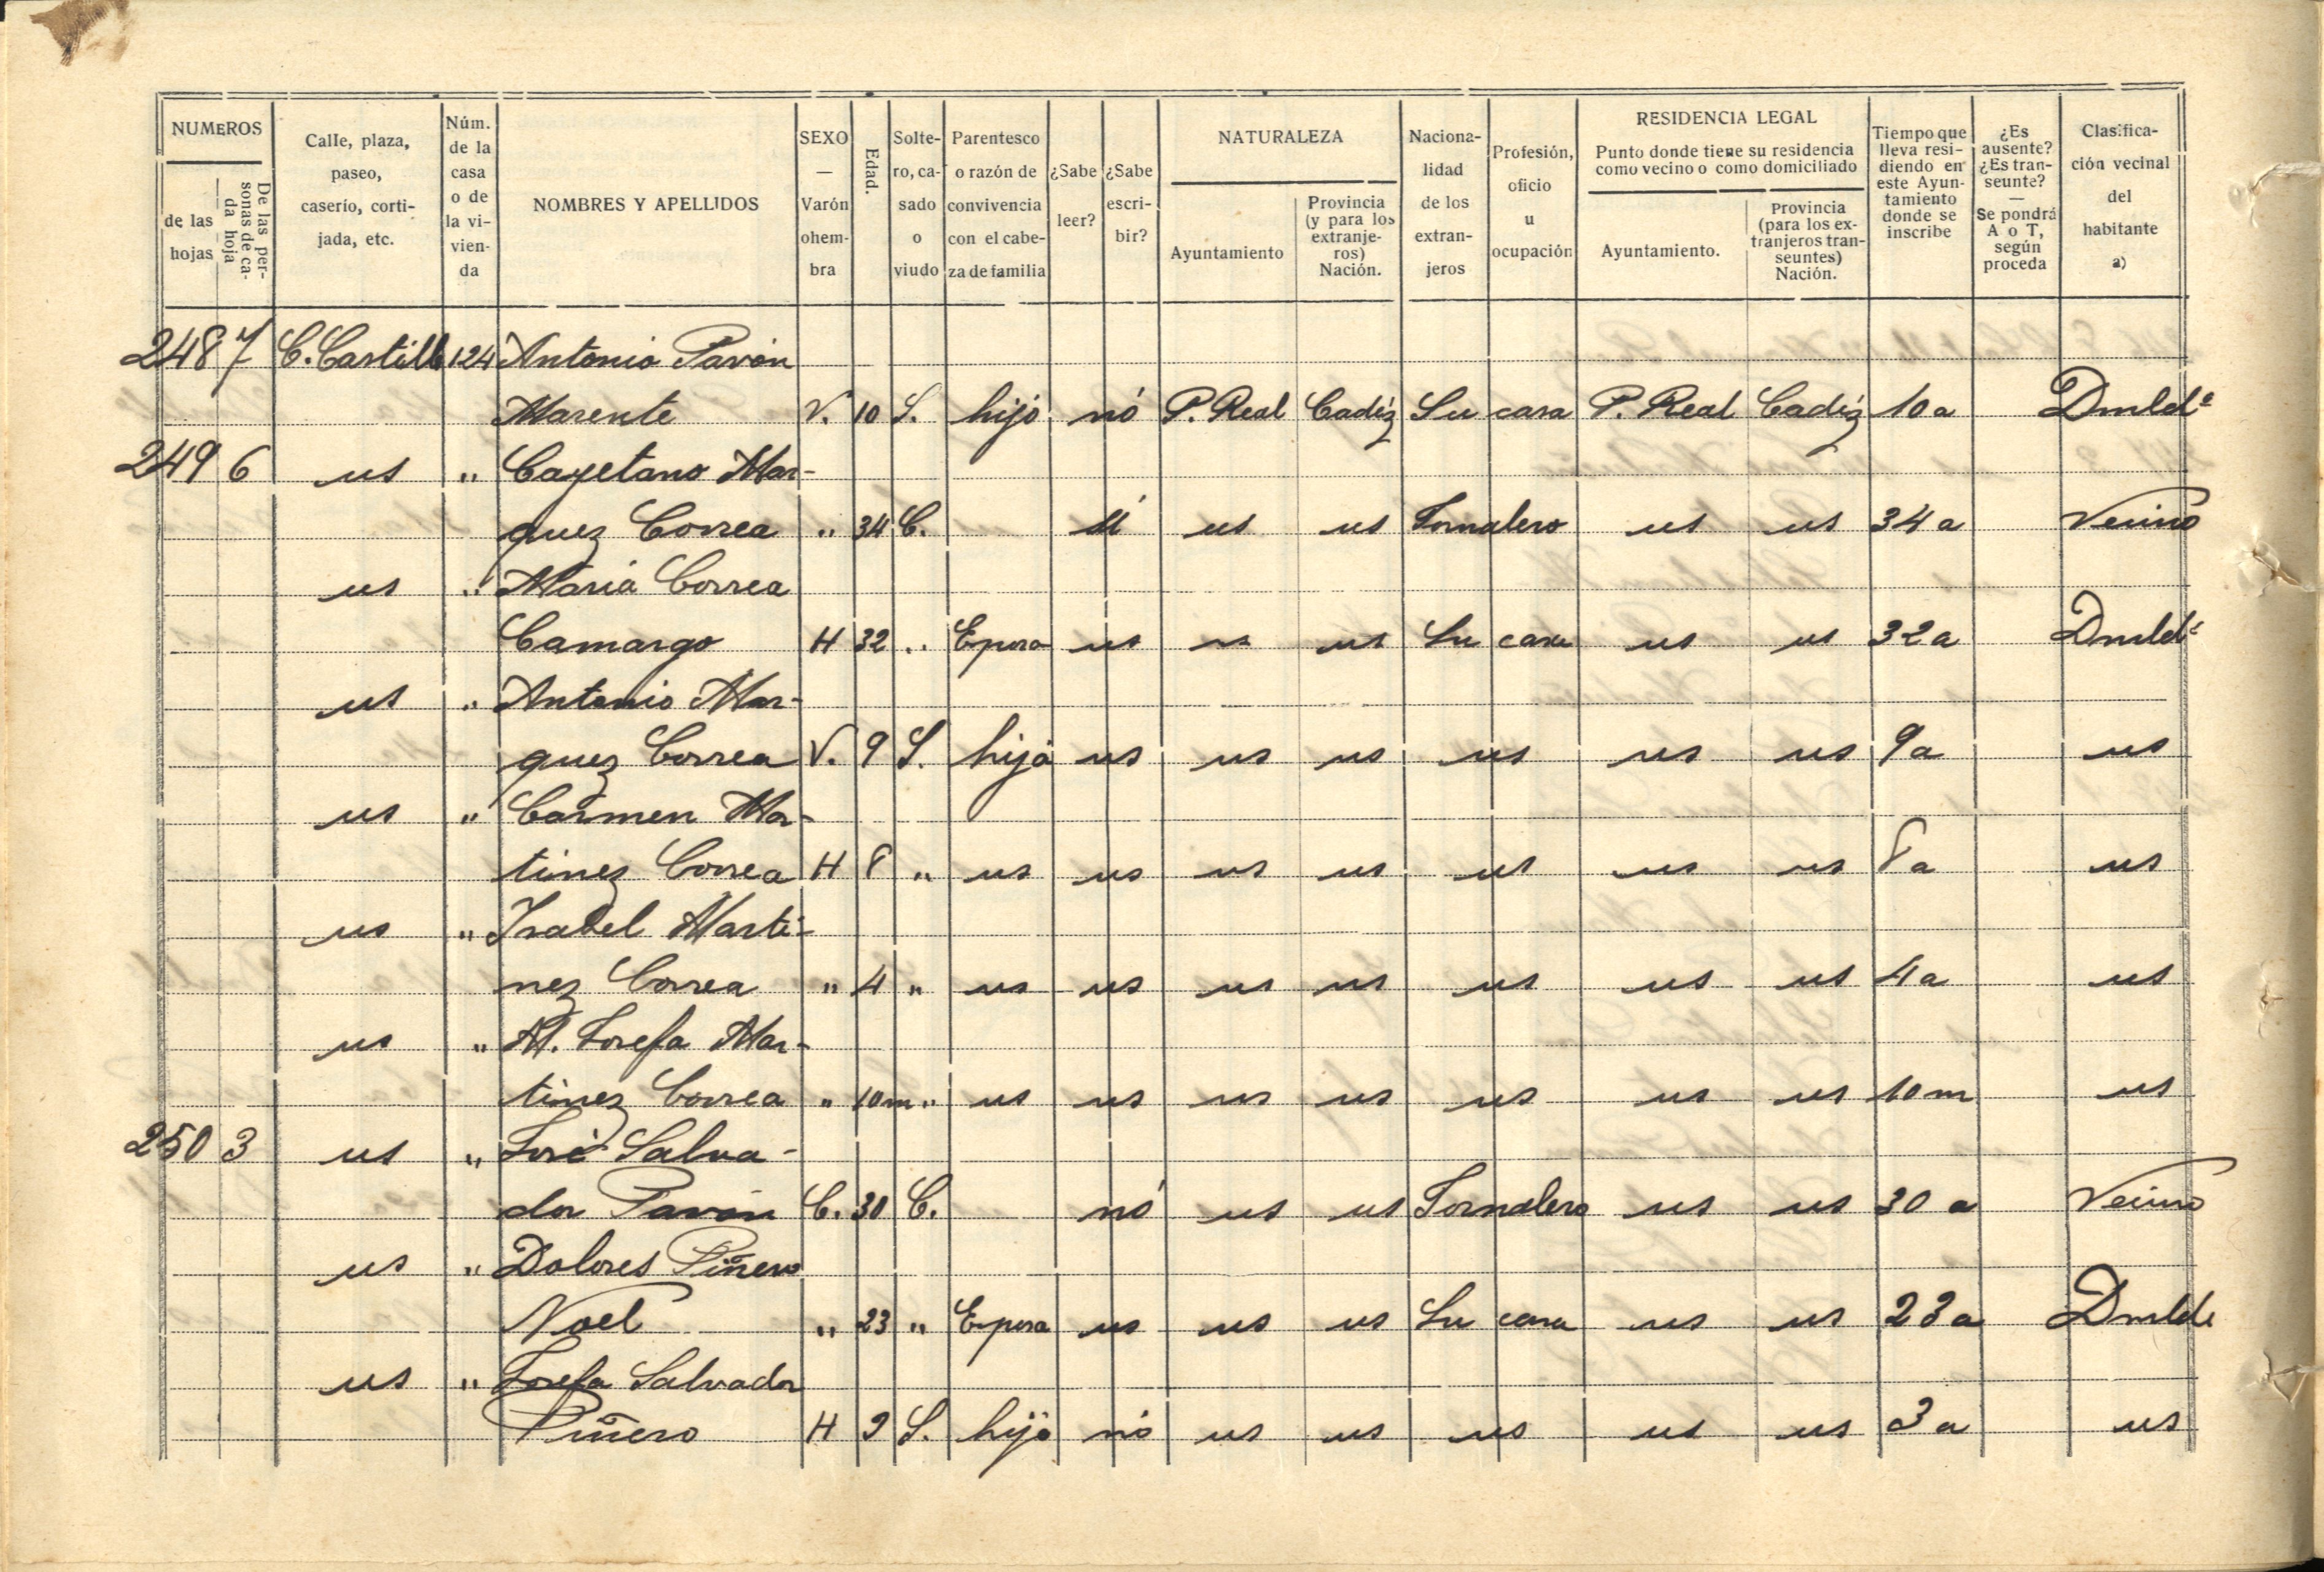 NUMEROS
de las hojas
De las personas de cada hoja
Calle, plaza, paseo, caserío, cortijada, etc.
Núm. de la casa o de la vivienda
NOMBRES Y APELLIDOS
SEXO — Varón o hembra
Edad.
Soltero, casado o viudo
Parentesco o razón de convivencia con el cabeza de familia
¿Sabe leer?
¿Sabe escribir?
NATURALEZA
Ayuntamiento
Provincia (y para los extranjeros) Nación.
Nacionalidad de los extranjeros
Profesión, oficio u ocupación
RESIDENCIA LEGAL
Punto donde tiene su residencia como vecino o como domiciliado
Ayuntamiento.
Provincia (para los extranjeros transeuntes) Nación.
Tiempo que lleva residiendo en este Ayuntamiento donde se inscribe
¿Es ausente? ¿Es transeunte? — Se pondrá A o T, según proceda
Clasificación vecinal del habitante a)
248 7 C. Castillo 124 Antonio Pavón
Marente V. 10 S. hijo nó P. Real Cadiz Su casa P. Real Cadiz 10 a Dmldº
249 6 us " Cayetano Mar-
quez Correa " 34 C. sí us us Jornalero us us 34 a Vecino
us " Maria Correa
Camargo H 32 " Esposa us us us Su casa us us 32 a Dmldº
us " Antonio Mar-
quez Correa V. 9 S. hijo us us us us us us 9 a us
us " Carmen Mar-
tinez Correa H 8 " us us us us us us us 8 a us
us " Isabel Marti-
nez Correa " 4 " us us us us us us us 4 a us
us " M. Josefa Mar-
tinez Correa " 10 m " us us us us us us us 10 m us
250 3 us " José Salva-
dor Pavón C. 30 C. nó us us Jornalero us us 30 a Vecino
us " Dolores Piñero
Noel " 23 " Esposa us us us Su casa us us 23 a Dmldº
us " Josefa Salvador
Piñero H S. hija nó us us us us us 3 a us